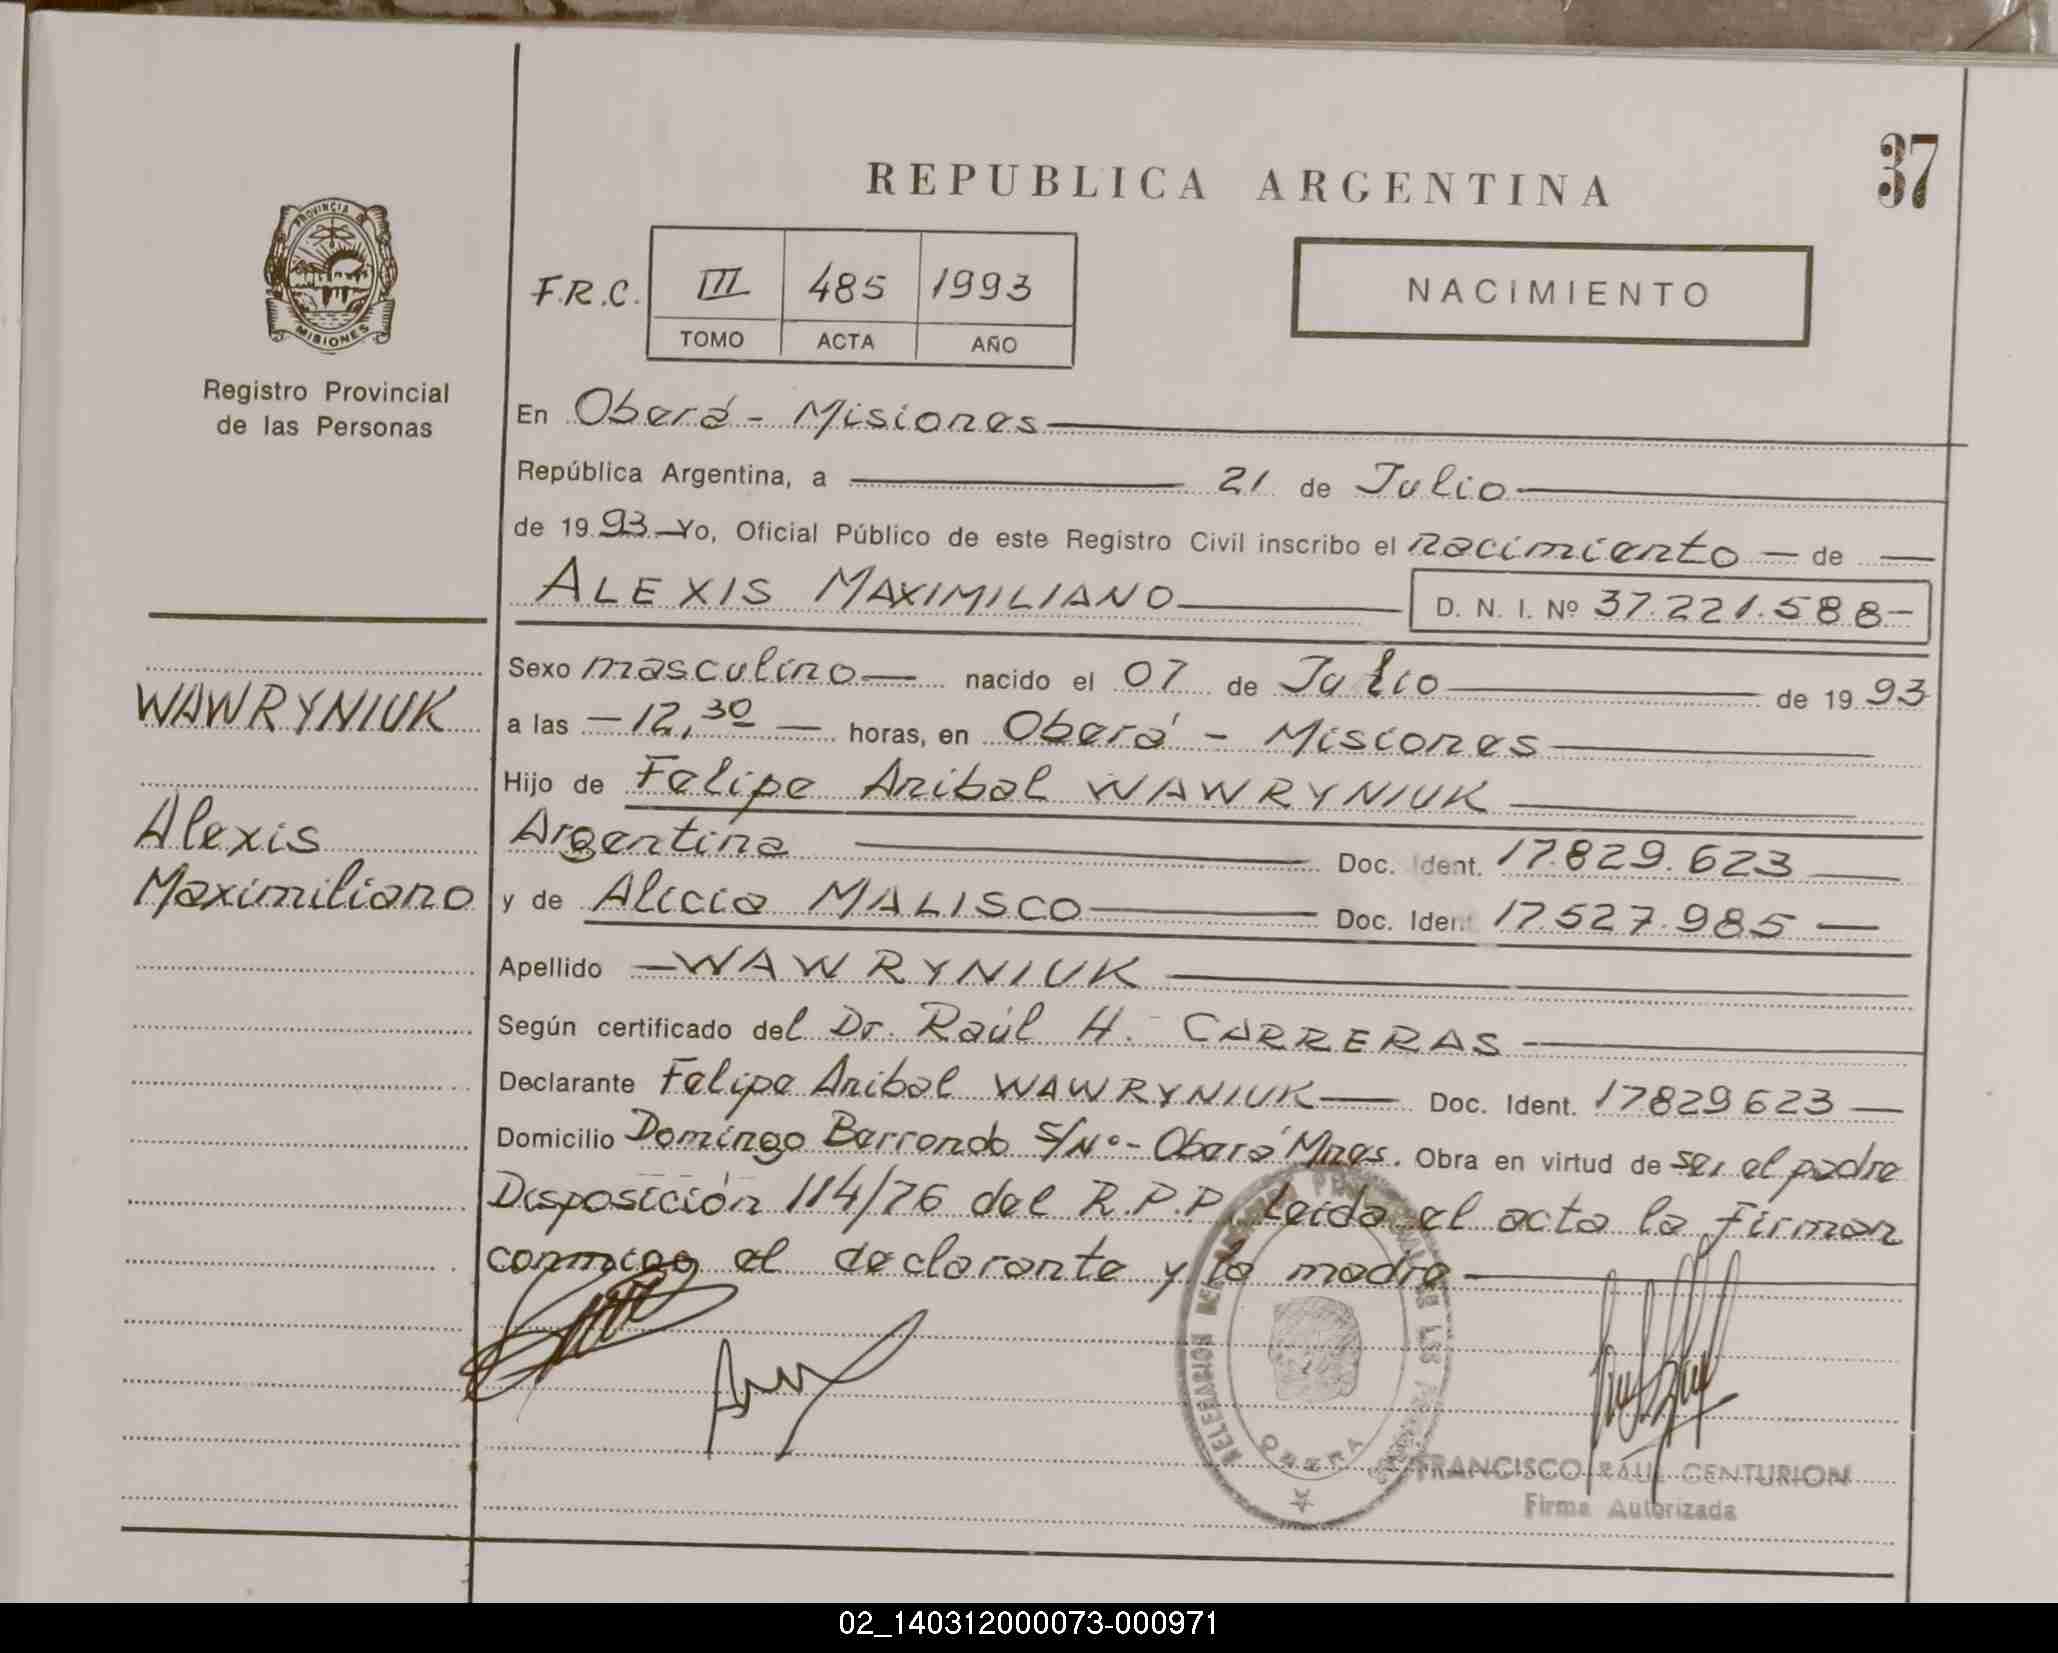 37
REPUBLICA ARGENTINA
PROVINCIA DE
MISIONES
Registro Provincial
de las Personas
F.R.C. III 485 1993
TOMO ACTA AÑO
NACIMIENTO
En Oberá - Misiones
República Argentina, a 21 de Julio
de 1993 Yo, Oficial Público de este Registro Civil inscribo el nacimiento de
ALEXIS MAXIMILIANO D. N. I. Nº 37.221.588
Sexo masculino nacido el 07 de Julio de 1993
WAWRYNIUK
a las 12,30 horas, en Oberá - Misiones
Hijo de Felipe Anibal WAWRYNIUK
Alexis
Argentina Doc. Ident. 17.829.623
Maximiliano
y de Alicia MALISCO Doc. Ident 17.527.985
Apellido WAWRYNIUK
Según certificado del Dr. Raúl H. CARRERAS
Declarante Felipe Anibal WAWRYNIUK Doc. Ident. 17829623
Domicilio Domingo Berrondo S/Nº - Oberá Mnes. Obra en virtud de ser el padre
Disposición 114/76 del R.P.P. Leida el acta la firman
conmigo el declarante y la madre
OBERA
FRANCISCO RAUL CENTURION
Firma Autorizada
02_140312000073-000971